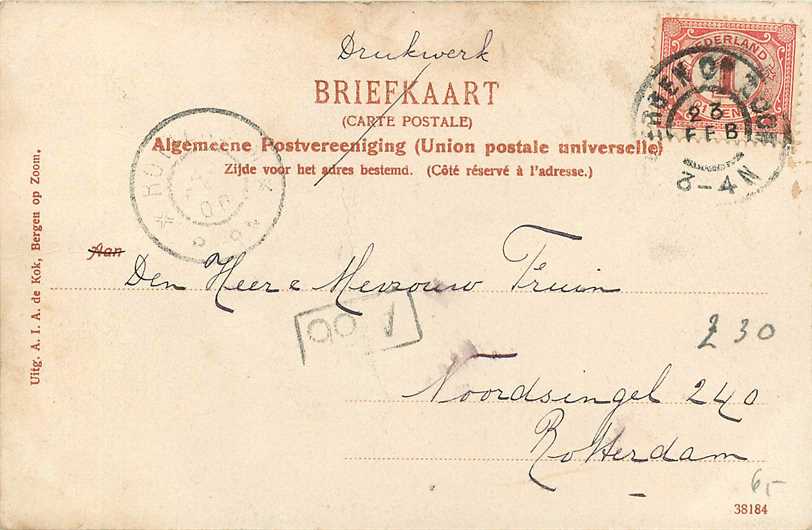 Drukwerk
BRIEFKAART
(CARTE POSTALE)
Algemeene Postvereeniging (Union postale universelle)
Zijde voor het adres bestemd. (Côté réservé à l'adresse.)
NEDERLAND
1
BERGEN OP ZOOM
23
FEB
3-4N
Uitg. A. I. A. de Kok, Bergen op Zoom.
Aan
Den Heer & Mevrouw Fruin
1
Z 30
Noordsingel 240
Rotterdam
6,-
38184